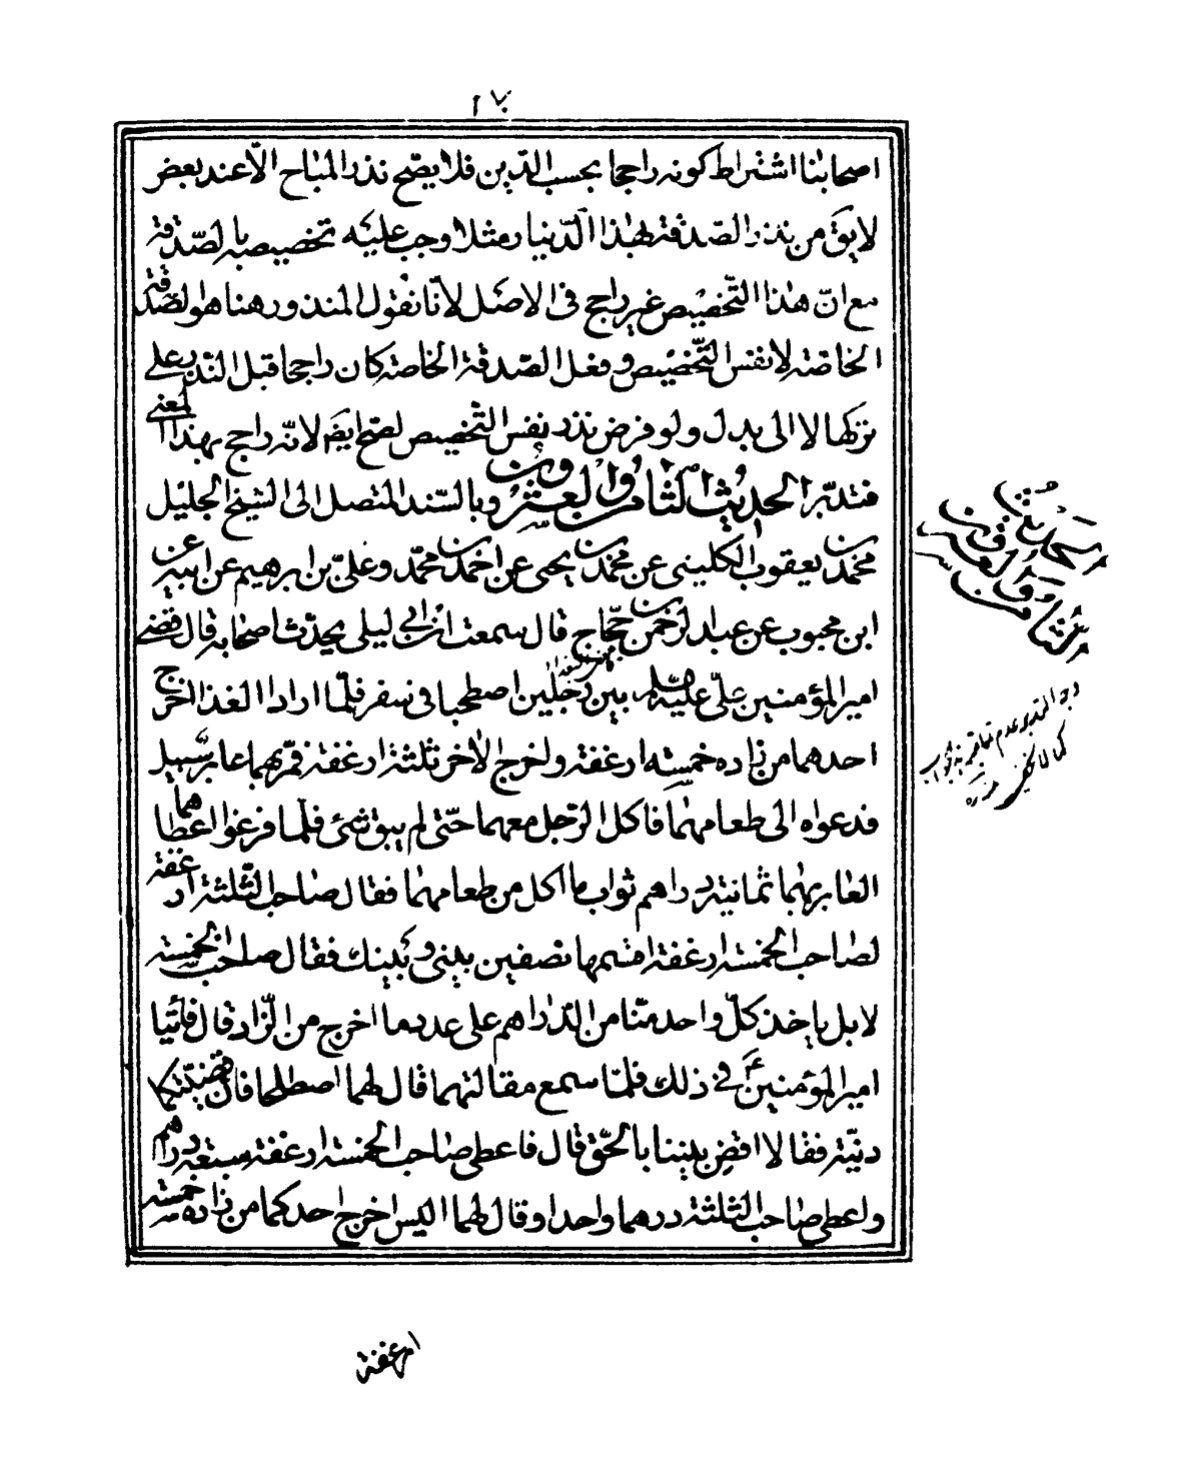 اصحابنا اشتراط كونه راجحا بحسب الدّين فلا يصّح نذر المباح الّا عند بعض
لا يق من نذر الصّدقة بهٰذا الّدينار مثلا وجب عليه تخصيصه بالصّدقة
مع انّ هٰذا التّخصيص غير راجح فى الاصل لأنّا نقول المنذور هنا هو الصّدقة
الخاصّة لا نفس التّخصيص وفعل الصّدقة الخاصة كان راجحا قبل النّذر على
تركها لا الى بدل ولو فرض نذر نفس التّخصيص لصّح ايضم لانّه راجح بهذا المعنى
فتدبّر الحديث الثامن والعشرون وبالسّند المتصل الى الشيخ الجليل
محمّد بن يعقوب الكلينى عن محمّد بن يحيى عن احمد بن محمّد وعلىّ بن ابرهيم عن ابيه عن
ابن محبوب عن عبد الرّحمن بن حجّاج قال سمعت ابن ابى ليلى يحدّث اصحابه قال قضى
امير المؤمنين علىّ عليه السلم بين رجلين اصطحبا فى سفر فلمّا ارادا الغذا اخرج
احدهما من زاده خمسة ارغفة واخرج الاخر ثلثة ارغفة فمرّ بهما عابر سبيل
فدعواه الى طعامهما فاكل الرّجل معهما حتّى لم يبق شئ فلمّا فرغوا اعطاهما
العابر بهما ثمانية دراهم ثواب ما اكل من طعامهما فقال صاحب الثّلثة ارغفة
لصاحب الخمسة ارغفة اقسمها نصفين بينى وبينك فقال صاحب الخمسة
لا بل ياخذ كلّ واحد منّا من الدّراهم على عدد ما اخرج من الزّاد قال فاتيا
امير المؤمنين ع فى ذلك فلمّا سمع مقالتهما قال لهما اصطلحا فان قضيّتكما
دنيّة فقالا اقض بيننا بالحّق قال فاعطى صاحب الخمسة ارغفة سبعة دراهم
واعطى صاحب الثلثة درهما واحدا وقال لهما اليس اخرج احدكما من زاده خمسة
الحديث
الثامن والعشرون
كما لا يخفى منه
ارغفة